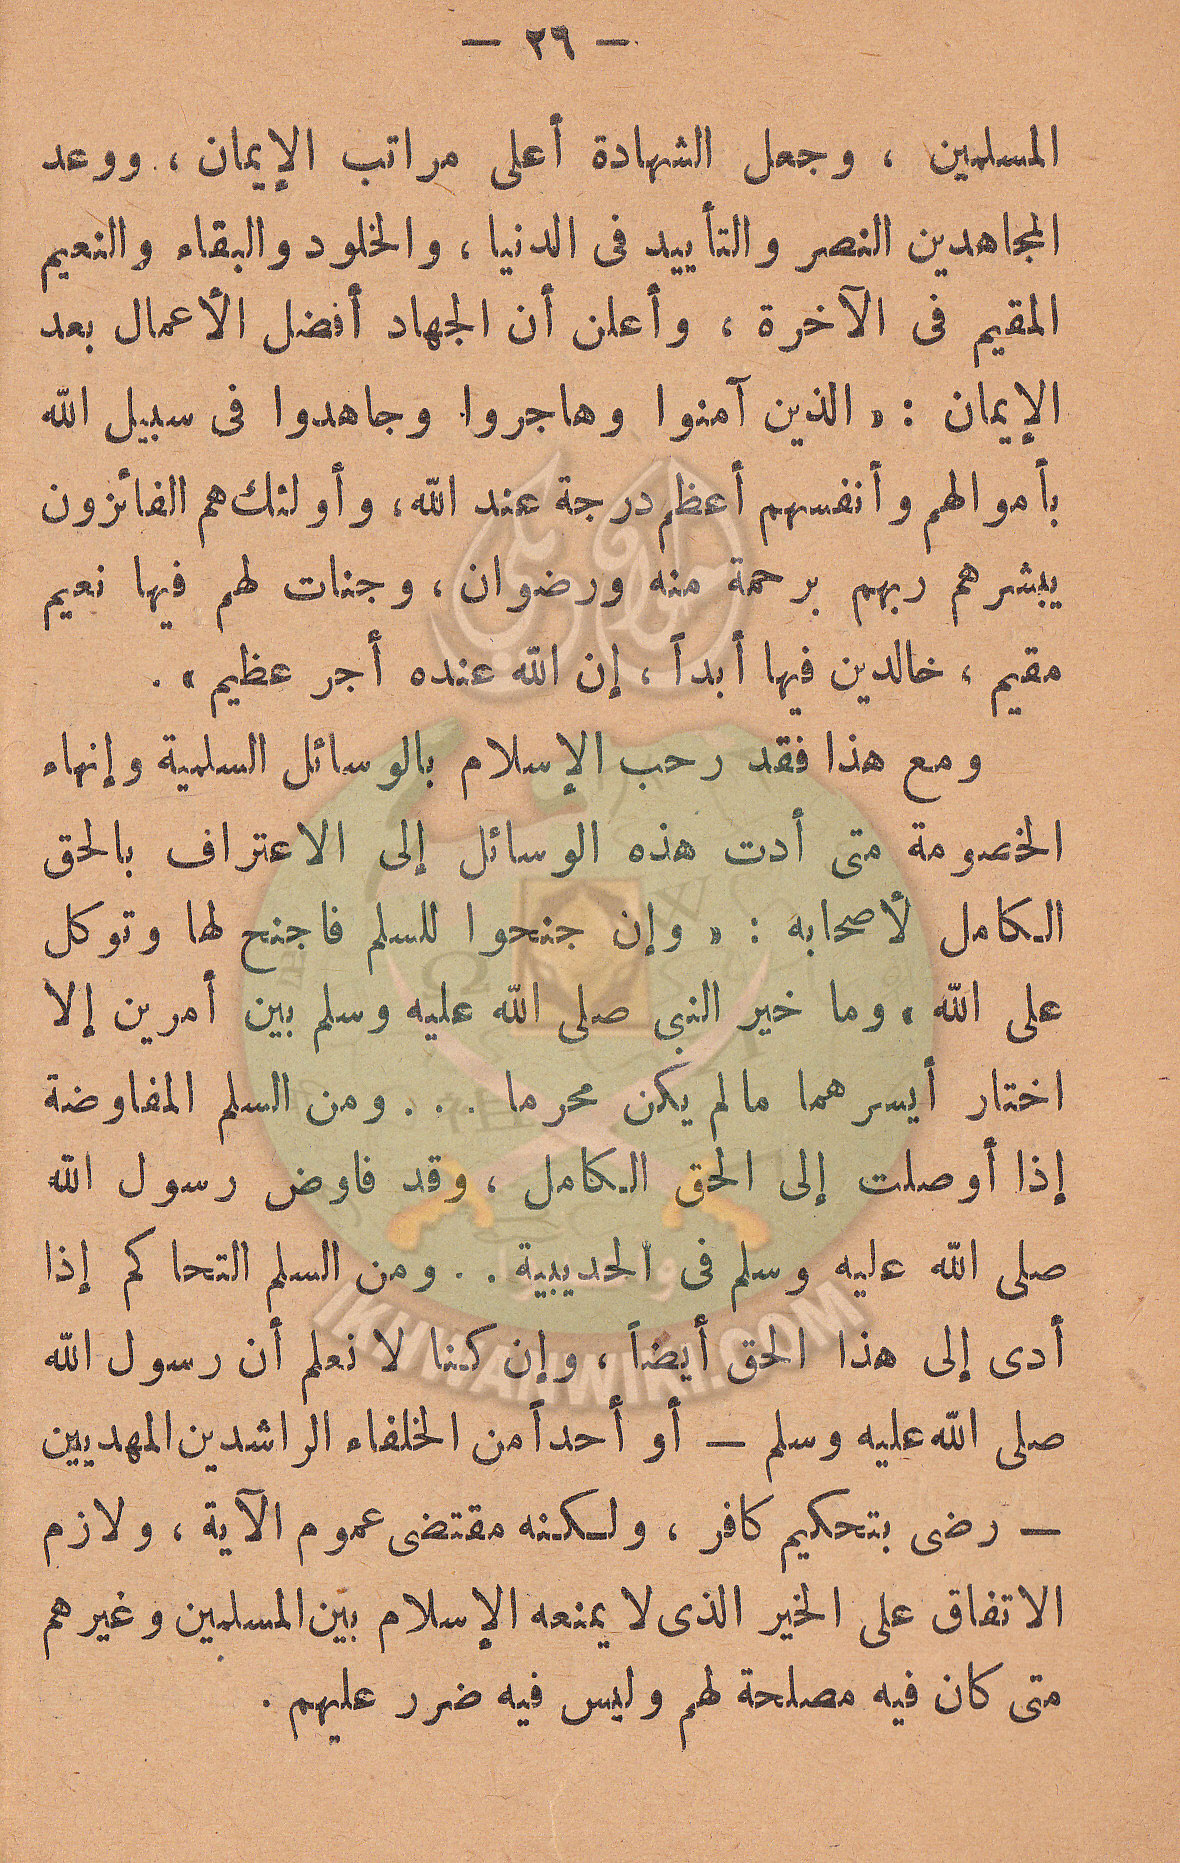 — ٢٦ —
المسلمين ، وجعل الشهادة أعلى مراتب الإيمان ، ووعد
المجاهدين النصر والتأييد فى الدنيا ، والخلود والبقاء والنعيم
المقيم فى الآخرة ، وأعلن أن الجهاد أفضل الأعمال بعد
الإيمان : « الذين آمنوا وهاجروا وجاهدوا فى سبيل الله
بأموالهم وأنفسهم أعظم درجة عند الله ، وأولئك هم الفائزون
يبشرهم ربهم برحمة منه ورضوان ، وجنات لهم فيها نعيم
مقيم ، خالدين فيها أبداً ، إن الله عنده أجر عظيم » .
ومع هذا فقد رحب الإسلام بالوسائل السلمية وإنهاء
الخصومة متى أدت هذه الوسائل إلى الاعتراف بالحق
الكامل لأصحابه : « وإن جنحوا للسلم فاجنح لها وتوكل
على الله » وما خير النبى صلى الله عليه وسلم بين أمرين إلا
اختار أيسرهما مالم يكن محرما . . . ومن السلم المفاوضة
إذا أوصلت إلى الحق الكامل ، وقد فاوض رسول الله
صلى الله عليه وسلم فى الحديبية . . ومن السلم التحاكم إذا
أدى إلى هذا الحق أيضاً ، وإن كنا لا نعلم أن رسول الله
صلى الله عليه وسلم — أو أحداً من الخلفاء الراشدين المهديين
— رضى بتحكيم كافر ، ولكنه مقتضى عموم الآية ، ولازم
الاتفاق على الخير الذى لا يمنعه الإسلام بين المسلمين وغيرهم
متى كان فيه مصلحة لهم وليس فيه ضرر عليهم .
IKHWANWIKI.COM